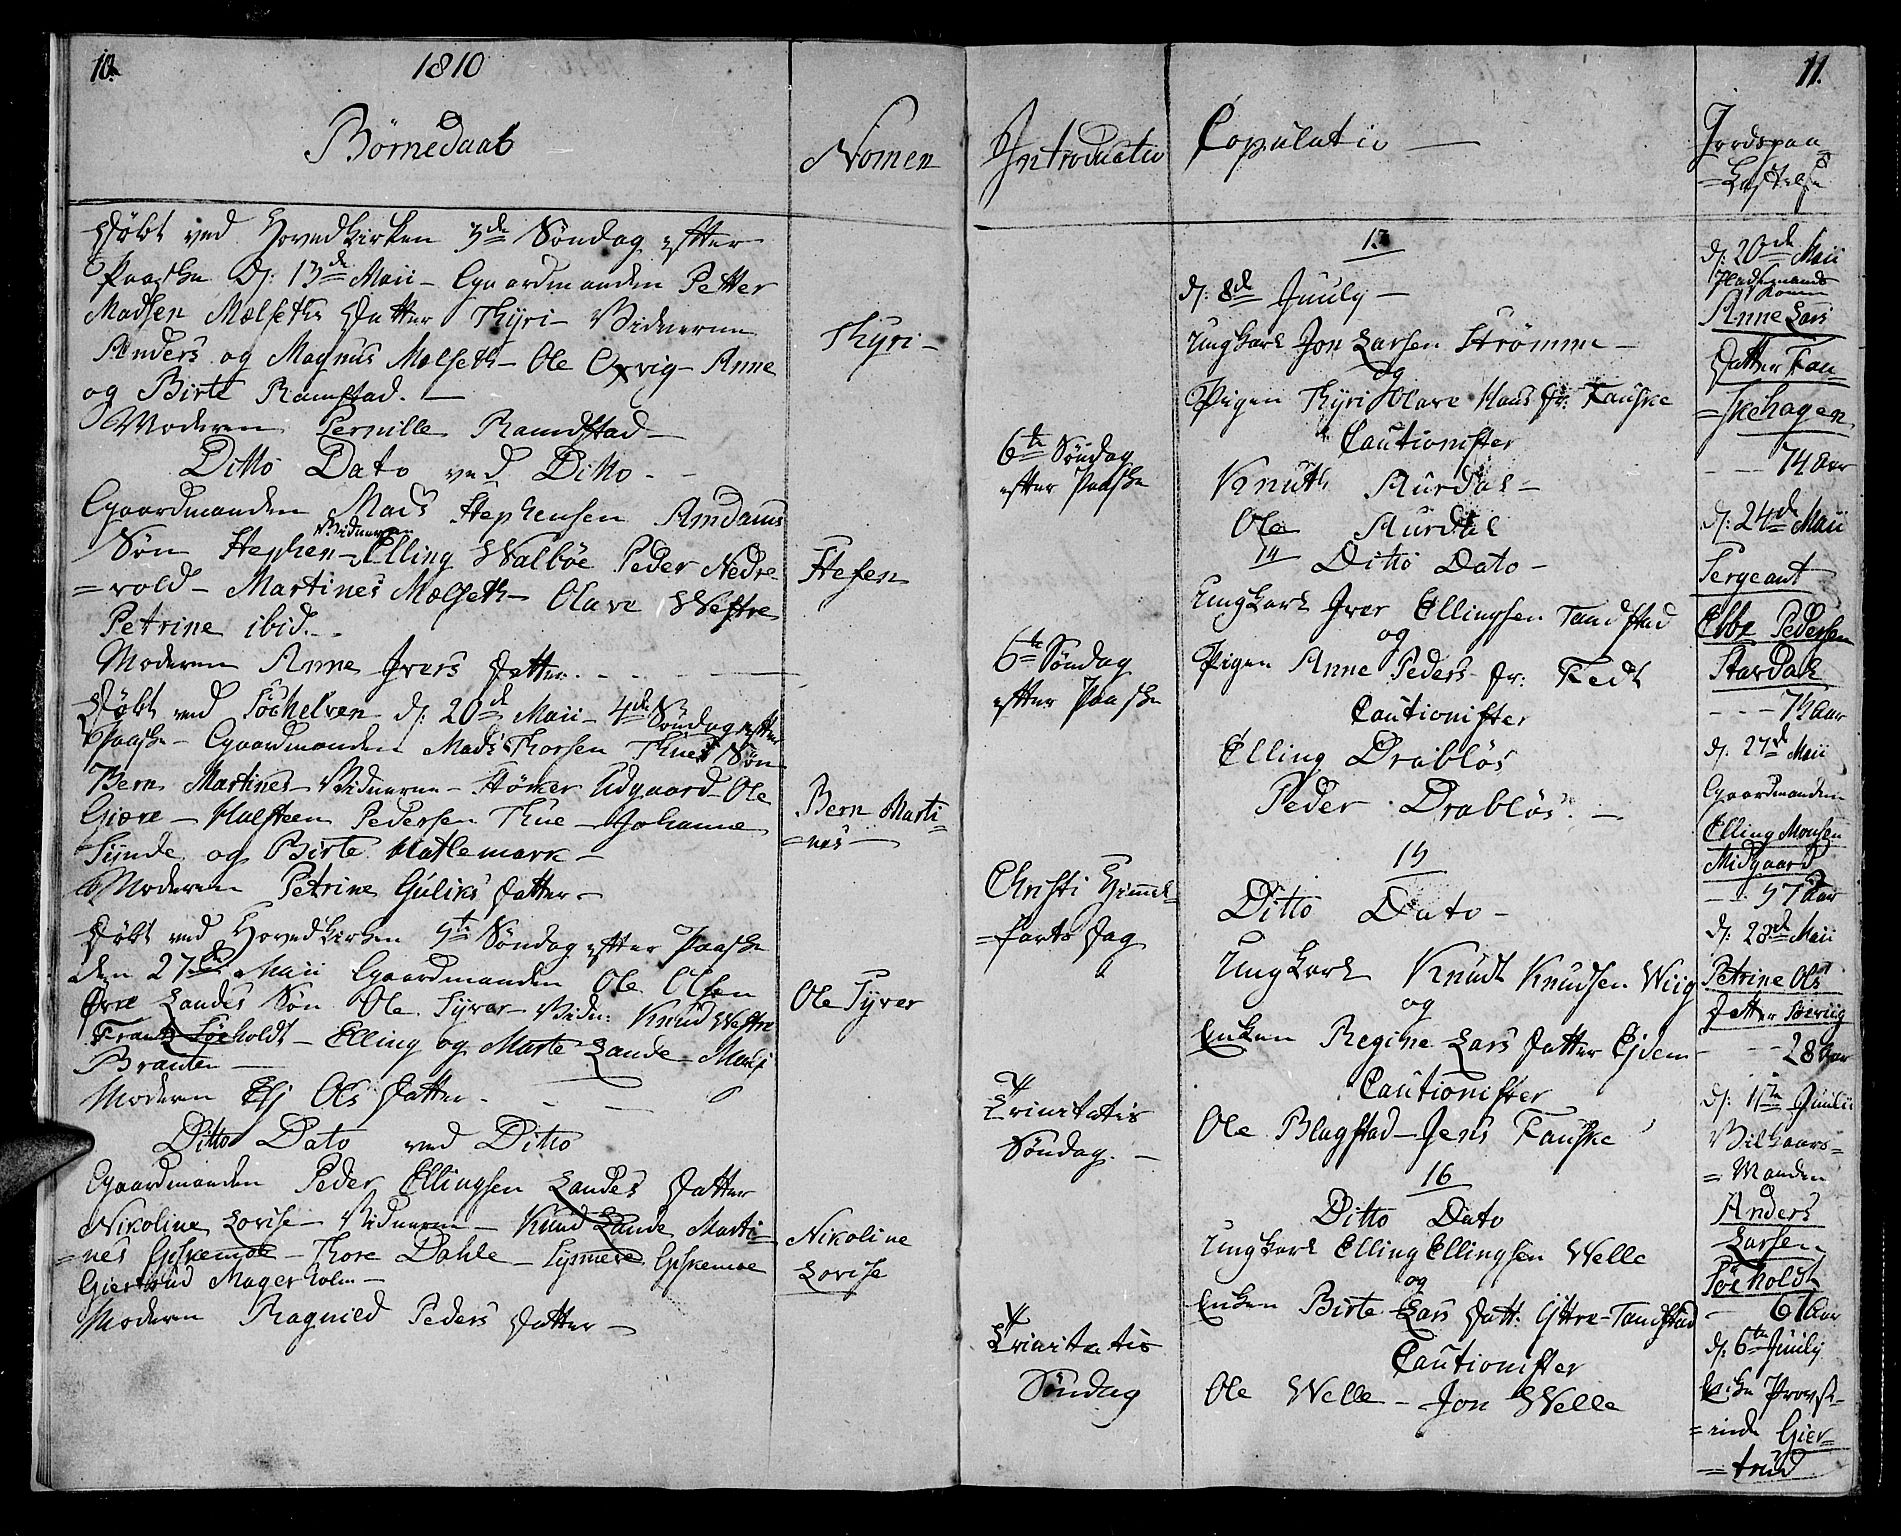 10.
1810
Børnedaab
Nomen
Døbt ved Hovedkirken 3de Søndag efter
Paaske d: 13de Maii - Gaardmanden Petter
Madsen Mælseths Datter Thyri - Vidnerne
Anders og Magnus Mælseth - Ole Oxvig - Anne
og Birte Ramstad. -
Moderen Pernille Ramdstad -
Thyri -
Ditto Dato ved Ditto -
Gaardmanden Mads Stephensen Amdams
Søn Stephen - Vidnerne Elling Walbøe Peder Nedre
=vold - Martines Mælseth - Olave Westre
Petrine ibid. -
Moderen Anne Ivers Datter. -
Stefen
Døbt ved Søchelven d: 20de Maii - 4de Søndag efter
Paaske - Gaardmanden Mads Thorsen Thues Søn
Bern Martines - Vidnerne - Størker Udgaard - Ole
Giære - Halsteen Pedersen Thue - Johanne
Synde og Birte Hatlemark -
Moderen Petrine Guliks Datter -
Bern Marti-
=nes -
Døbt ved Hovedkirken 5te Søndag efter Paaske
den 27de Maii Gaardmanden Ole Olsen
Øvre Landes Søn Ole Syver - Vidn: Knud Westre
Frantz Søeholdt - Elling og Marte Lande - Mari
Brauten -
Moderen Elj Ols Datter. -
Ole Syver
Ditto Dato ved Ditto
Gaardmanden Peder Ellingsen Landes Datter
Nikoline Lovise - Vidnerne - Knud Lande Marti-
=nes Giskemoe - Thore Dahle - Synnere Giskemoe
Giertrud Magerholm -
Moderen Ragnild Peders Datter -
Nikoline
Lovise
11.
Introductio
6te Søndag
efter Paaske
6te Søndag
efter Paaske
Christi Himmel-
=farts Dag
Trinitatis
Søndag. -
Trinitatis
Søndag
Copulatio -
13
d: 8de Juuly -
Ungkarl Jon Larsen Strømme -
og
Pigen Thyri Olave Hans Dr: Fauske
Cautionister
Knuth Aurdal -
Ole Aurdal
14 Ditto Dato -
Ungkarl Iver Ellingsen Tandstad
og
Pigen Anne Peders Dr: Fedt
Cautionister
Elling Drabløs
Peder Drabløs. -
15
Ditto Dato -
Ungkarl Knudt Knudsen Wiig
og
Enken Regine Lars Datter Ejdem -
Cautionister
Ole Blagstad - Jens Fauske
16
Ditto Dato
Ungkarl Elling Ellingsen Welle
og
Enken Birte Lars Datt: Yttre-Tandstad
Cautionister
Ole Welle - Jon Welle
Jordspaa-
=kastelse
d: 20de Maii
Pladsemands
Konen
Anne Lars
Datter Fau-
=skehagen
- - 74 Aar
d: 24de Maii
Sergeant
Ebbe Pedersen
Stavdal
- - - 74 Aar
d: 27de Maii
Gaardmanden
Elling Monsen
Midgaard
- - 57 Aar
d: 28de Maii
Petrine Ols
Datter
- - 28 Aar
d: 17te Juulii
Vilkaars-
=Manden
Anders
Larsen
Søeholdt
- 61 Aar
d: 6te Juuly
Enke Provst-
=inde Gier-
=trud